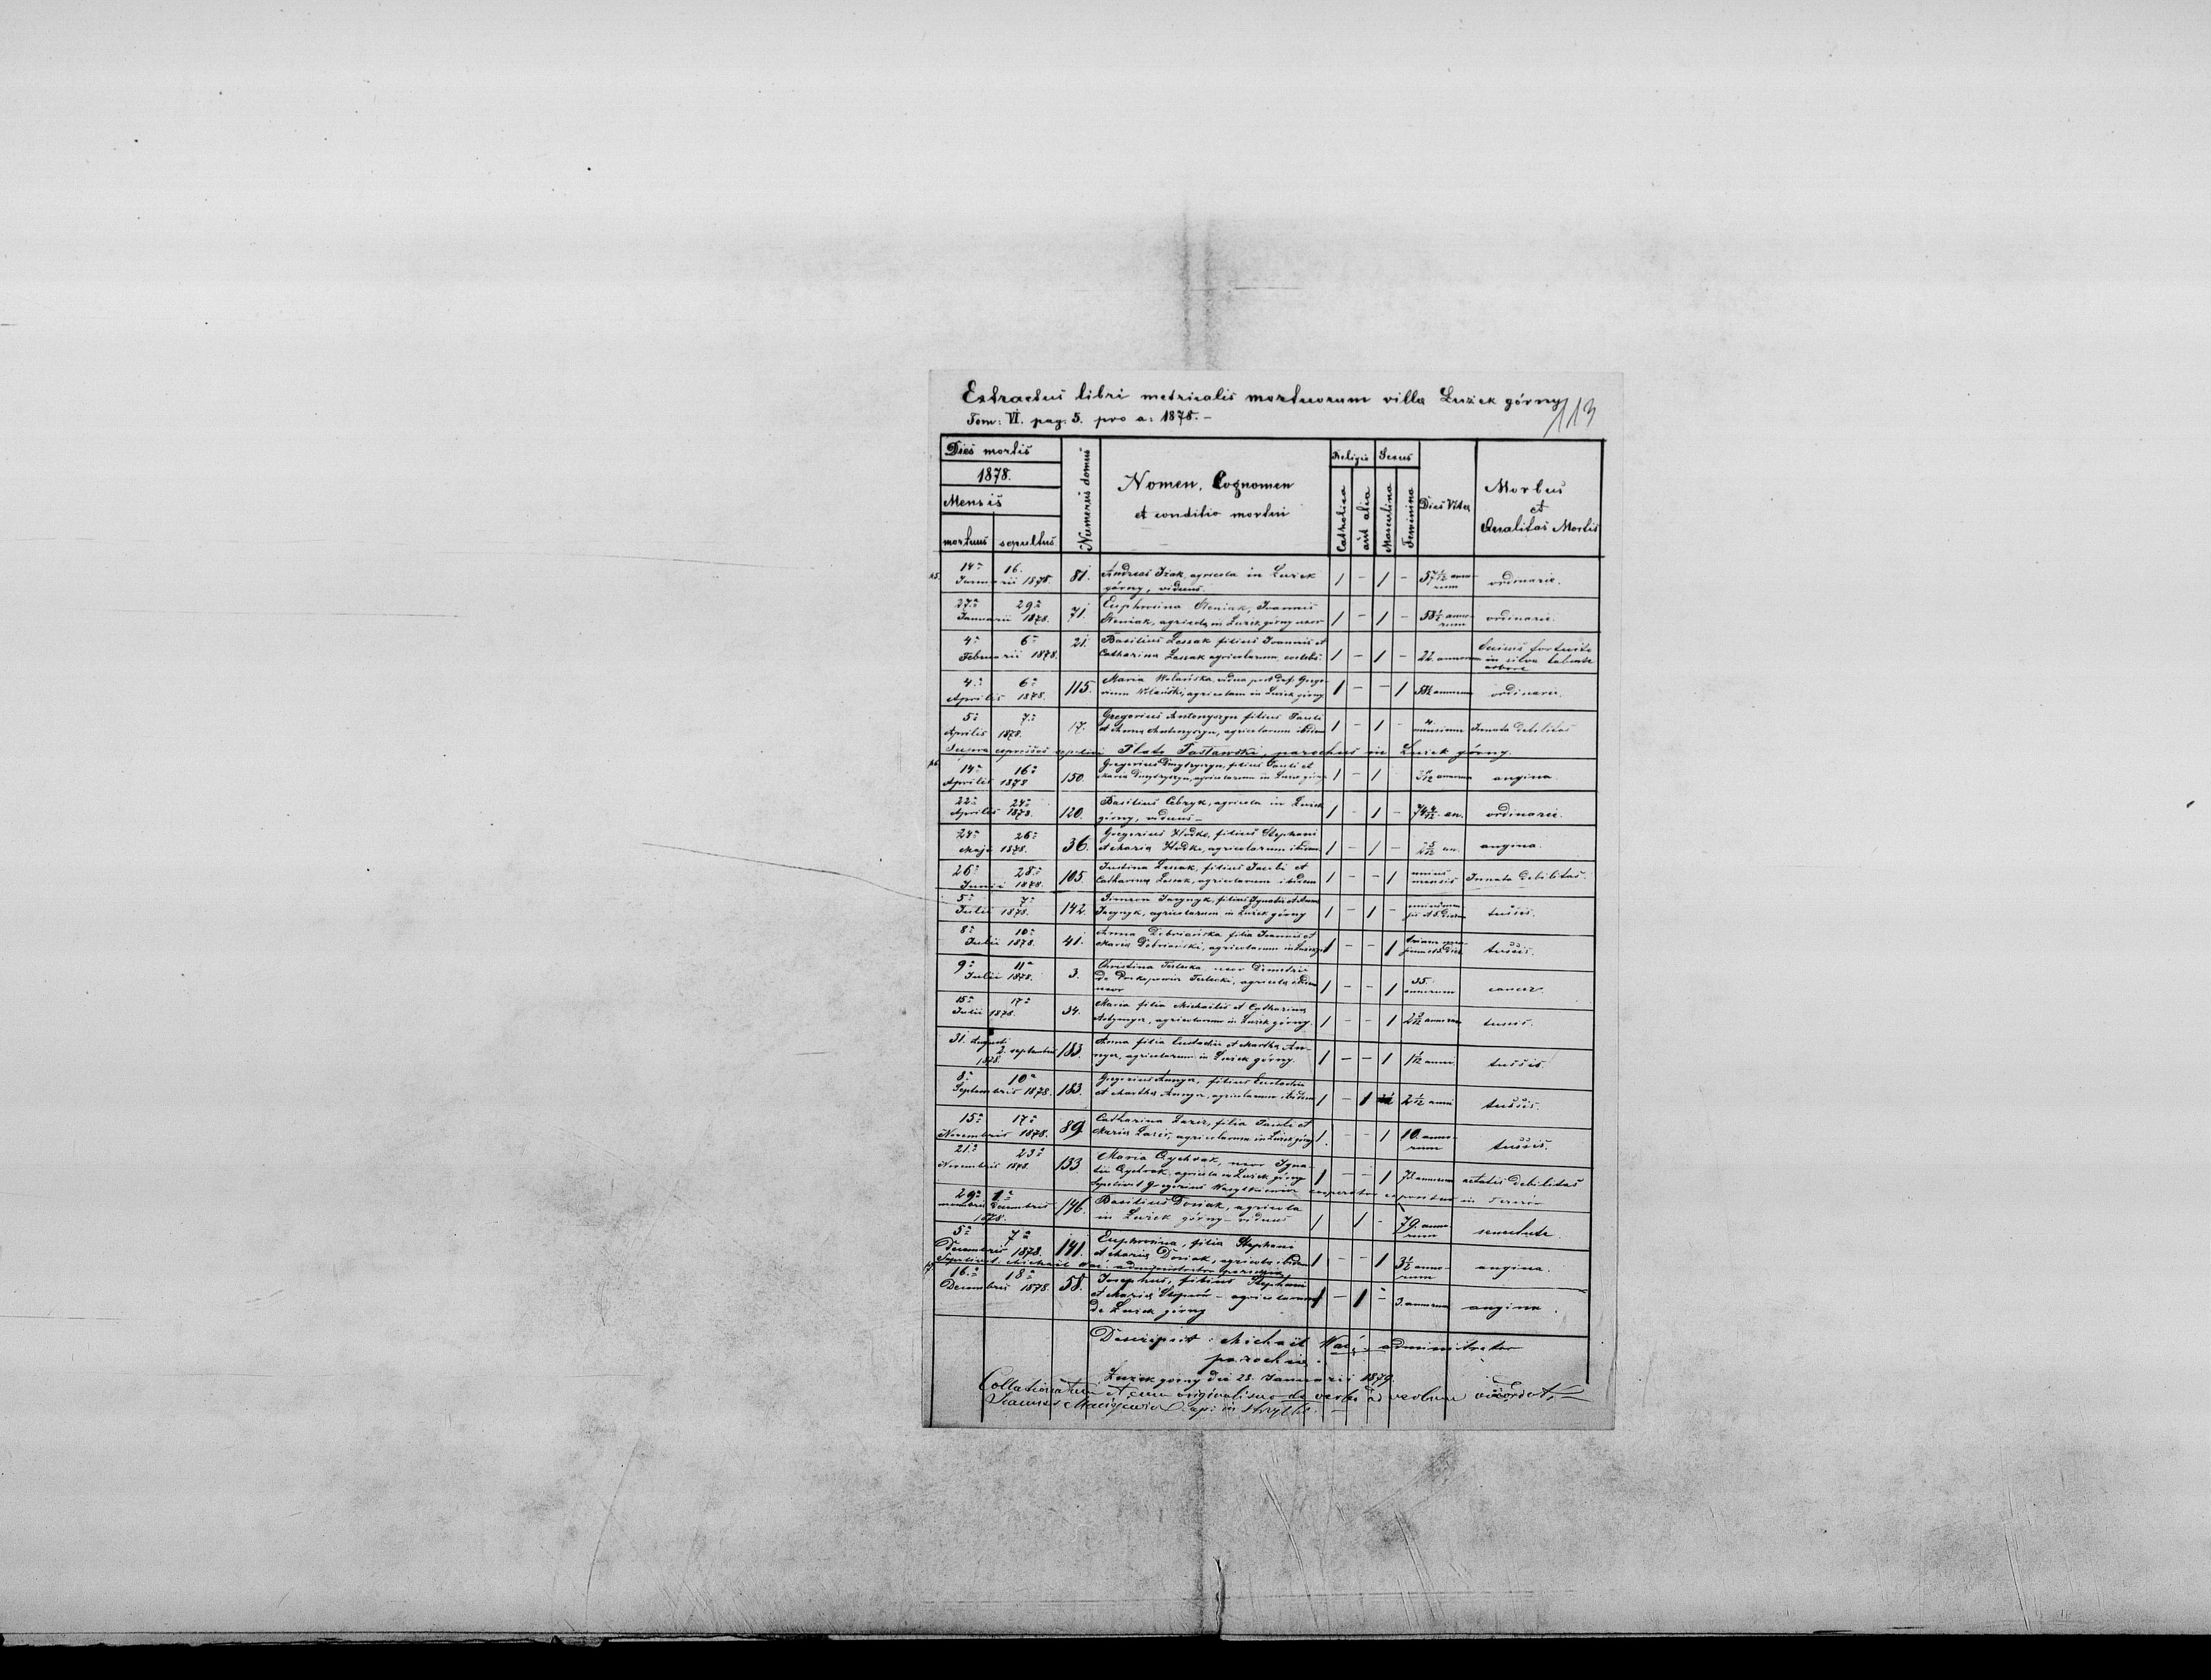 Extractus libri metricalis mortuorum villa Łużek górny
113
Tom: VI. pag: 5. pro a: 1878. –
Dies mortis
1878.
Mensis
mortuus sepultus
Numerus domus
Nomen, Cognomen
et conditio mortui
Religio Sexus
Catholica
aut alia
Masculina
Feminina
Dies Vitae
Morbus
et
Qualitas Mortis
14. 16. 81. Andreas Izak, agricola in Łużek 1 – 1 – 57 anno- ordinarie.
Januarii 1878. górny, viduus. rum
27. 29. 71. Euphrosina Steniak, Joannis 1 – 1 – 58½ anno- ordinarie.
Januarii 1878. Steniak, agricola in Łużek górny uxor rum
4. 6. 21. Basilius Lessak filius Joannis et 1 – 1 – 22. annorum fortuito
Februarii 1878. Catharina Lessak agricolarum in silva
arbore
4. 6. 115. Maria Wolańska, vidua post def. Grego- 1 – – 1 annorum ordinarie.
Aprilis 1878. rium Wolański, agricolam in Łużek górny
5. 7. 17. Gregorius Antonyszyn filius Pauli 1 – 1 – 4. Innata debilitas
Aprilis 1878. et Anna Antonyszyn, agricolarum ibidem mensium
Supra expressos sepelivi Plato Pasławski, parochus in Łużek górny.
14. 16. 150. Gregorius Dmytryszyn, filius Pauli et 1 – 1 annorum angina.
Aprilis 1878 Maria Dmytryszyn, agricolarum in Łużek górny
22. 24. 120. Basilius Cebryk, agricola in Łużek 1 – 1 – 74 an. ordinarie.
Aprilis 1878. górny, viduus –
24. 26. 36. Gregorius Hodko, filius Stephani 1 – 1 – an. angina.
Maji 1878. et Maria Hodko, agricolarum ibidem
26. 28. 105. Justina Lessak, filius Jacobi et 1 – – 1 unius Innata debilitas.
Junii 1878. Catharina Lessak, agricolarum ibidem mensis
5. 7. 142. Simeon Jacynyk, filius Ignatii et Anna 1 – 1 – tussis.
Julii 1878. Jacynyk, agricolarum in Łużek górny
8. 10. 41. Anna Dobriańska filia Joannis et 1 – – 1 trium tussis.
Julii 1878. Maria Dobriański, agricolarum in Łużek
9. 11. 3. Christina Terlecka uxor Demetrii 1 – – 1 35. cancer.
Julii 1878. de Prokopowicz Terlecki, agricola ibidem annorum
uxor
15. 17. 34. Maria filia Michaelis et Catharina 1 – – 1 annorum tussis.
Julii 1878. agricolarum in Łużek górny.
31. Augusti 183. Anna filia Eustachii et Martha An- 1 – – 1 anni tussis.
2. septembris nyer, agricolarum in Łużek górny.
1878.
8. 10. 183. Gregorius Annyer, filius Eustachii 1 – 1 2 anni tussis.
Septembris 1878. et Martha Annyer, agricolarum ibidem
15. 17. 89. Catharina Łazir, filia Pauli et 1 – – 1 10. anno- tussis.
Novembris 1878. Maria Łazir, agricolarum in Łużek górny rum
21. 23. 133. Maria Cychrak, uxor Igna- 1 – – 1 annorum aetatis debilitas
Novembris 1878. tii Cychrak, agricola in Łużek górny
Sepelivit Gregorius cooperator expositus in
29. 1. 146. Basilius Dosiak, agricola 1 1 – 79. anno- senectute.
Decembris in Łużek górny – viduus rum
1878.
5. 7. 141. Euphrosina, filia Stephani 1 – – 1 3½ anno- angina.
Decembris 1878. et Maria Dosiak, agricola ibidem rum
Sepelivit Michaël administrator parochiae
16. 18. 58. Josephus, filius Stephani 1 – 1 – 3. annorum angina.
Decembris 1878. et Maria – agricolarum
de Łużek górny
Descripsit: Michaël administrator
parochiae.
Łużek górny die 28. Januarii 1879.
Collationatum et cum originali suo de verbo ad verbum concordat,